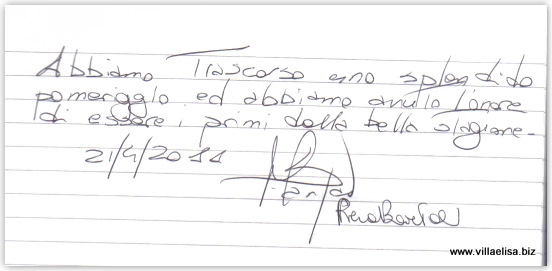 Abbiamo Trascorso uno splendido
pomeriggio ed abbiamo avuto l'onore
di essere i primi della bella stagione -
21/4/2011
www.villaelisa.biz